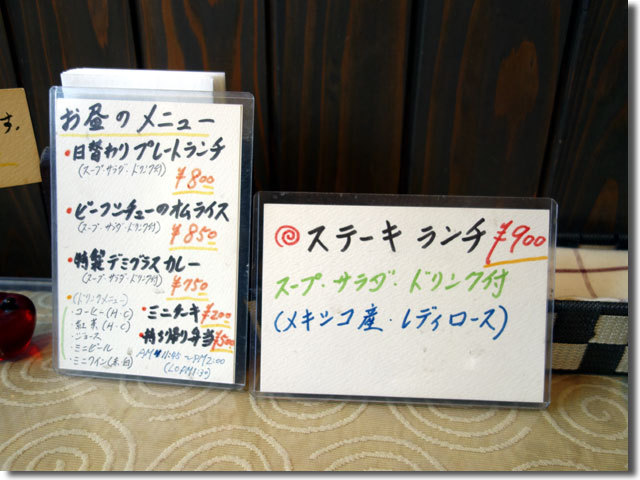 す。
お昼のメニュー
・日替わりプレートランチ
(スープ・サラダ・ドリンク付)
¥800
・ビーフシチューのオムライス
(スープ・サラダ・ドリンク付)
¥850
・特製デミグラスカレー
(スープ・サラダ・ドリンク付)
¥750
(ドリンクメニュー)
・コーヒー(H・C)
・紅茶(H・C)
・ジュース
・ミニビール
・ミニワイン(赤、白)
・ミニケーキ ¥200
・持ち帰り弁当 ¥500
AM11:45~PM2:00
ステーキ ランチ ¥900
スープ・サラダ・ドリンク付
(メキシコ産・レディロース)